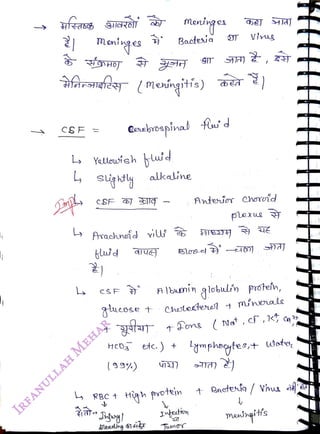 → मस्तिष्क आवरणों को Meninges कहा जाता
है। Meninges में Bacteria या Virus
के संक्रमण से सूजन आ जाता है, इसे
मेनिनजाइटिस (Meningitis) कहते हैं।
→ CSF = Cerebrospinal fluid
↳ Yellowish fluid
↳ Slightly alkaline
Imp↳ CSF का स्राव - Anterior Choroid
plexus से
↳ Arachnoid villi के माध्यम से यह
fluid वापस Blood में चला जाता
है।
↳ CSF में Albumin globulin protein,
glucose + Cholesterol + minerals
+ यूरिया + Ions (Na⁺, Cl⁻, K⁺, Ca⁺⁺
HCO₃⁻ etc.) + lymphocytes, + Water
(99%) पाया जाता है।
↳ RBC + High protein + Bacteria / Virus नहीं
होता
↓ ↓ ↓
Injury / Infection Meningitis
Bleeding Tumor
IRFANULLAH MEHAR